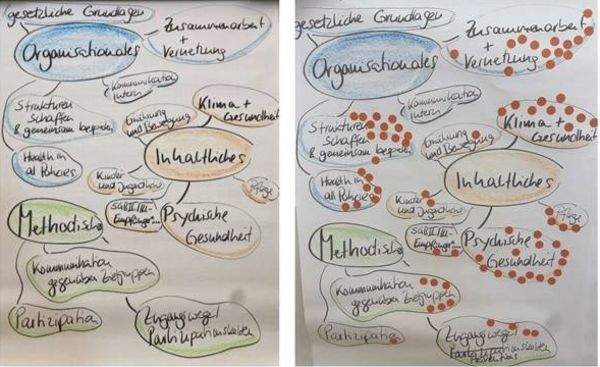 gesetzliche Grundlagen
Organisationales
Zusammenarbeit
+
Vernetzung
Kommunikation
intern
Strukturen
Schaffen
& gemeinsam
Health in
all Policies
Ernährung
und Bewegung
Klima +
Gesundheit
Inhaltliches
Kinder
und Jugendliche
Pflege
SGB II/III-
Empfänger...
Psychische
Gesundheit
Methodisches
Kommunikation
gegenüber Zielgruppen
Partizipation
Zugangswege/
gesetzliche Grundlagen
Organisationales
Zusammenarbeit
+
Vernetzung
Kommunikation
intern
Strukturen
Schaffen
& gemeinsam
Health in
all Policies
Ernährung
und Bewegung
Klima +
Gesundheit
Inhaltliches
Kinder
und Jugendliche
Pflege
SGB II/III-
Empfänger
Psychische
Gesundheit
Methodisches
Kommunikation
gegenüber Zielgruppen
Partizipation
Zugangswege/